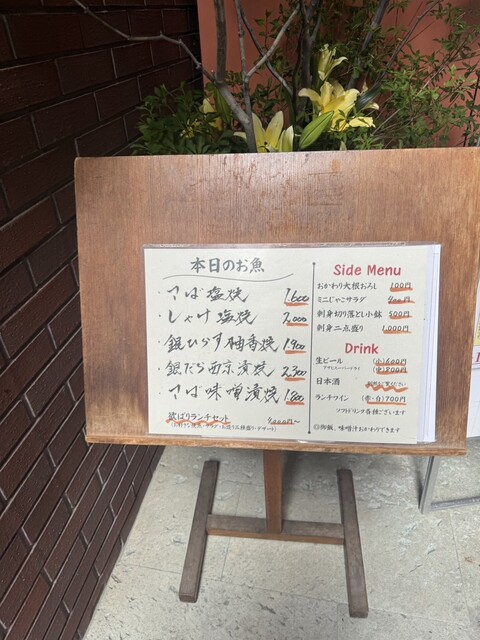 本日のお魚
・さば塩焼 1,600
・しゃけ塩焼 2,000
・銀ひらす柚香焼 1,900
・銀だら西京漬焼 2,300
・さば味噌漬焼 1,800
欲ばりランチセット 4,000〜
Side Menu
おかわり大根おろし 100円
ミニじゃこサラダ 400円
刺身切り落とし小鉢 500円
刺身二点盛り 1,000円
Drink
生ビール (小)600円
アサヒスーパードライ (中)800円
日本酒
ランチワイン (赤・白)700円
ソフトドリンク各種ございます
◎御飯、味噌汁おかわりできます